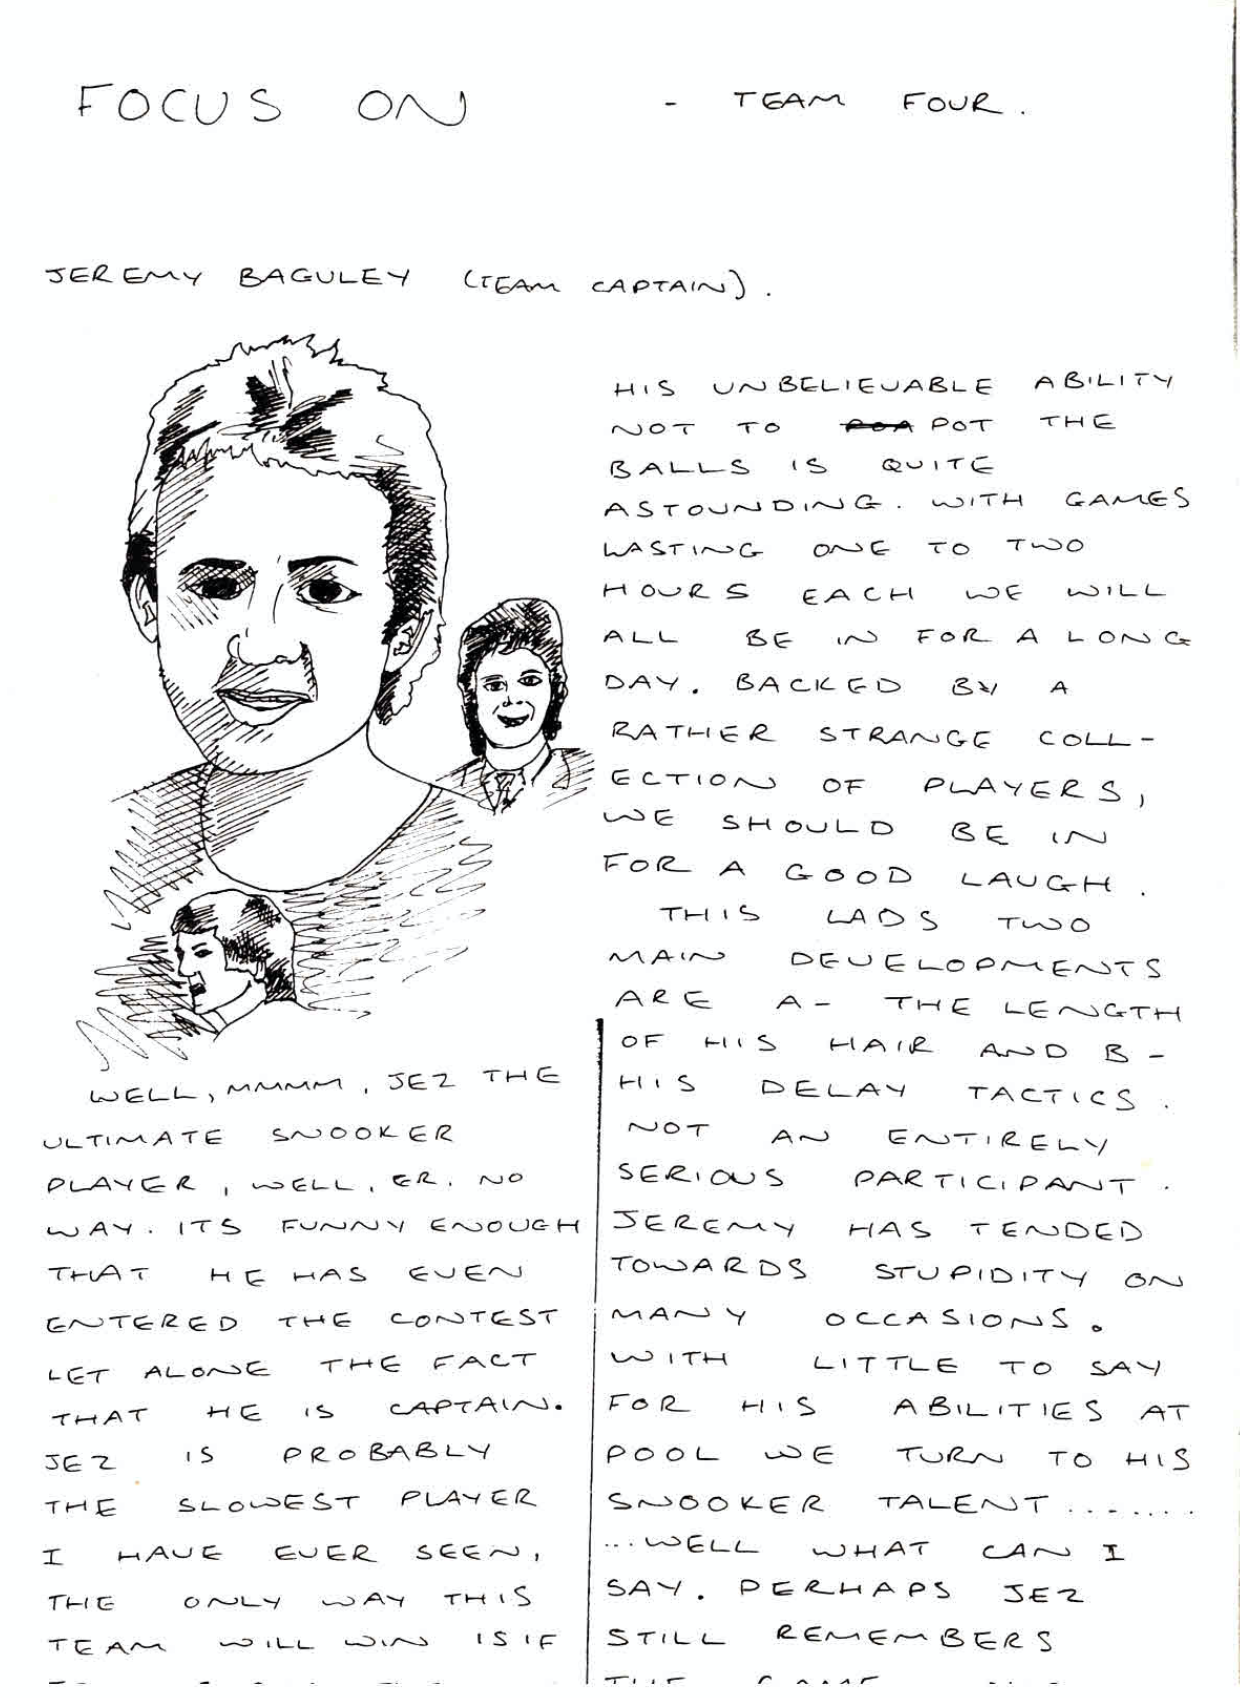 FOCUS ON - TEAM FOUR.
JEREMY BAGULEY (TEAM CAPTAIN).
WELL, MMMM, JEZ THE
ULTIMATE SNOOKER
PLAYER, WELL, ER, NO
WAY. ITS FUNNY ENOUGH
THAT HE HAS EVEN
ENTERED THE CONTEST
LET ALONE THE FACT
THAT HE IS CAPTAIN.
JEZ IS PROBABLY
THE SLOWEST PLAYER
I HAVE EVER SEEN,
THE ONLY WAY THIS
TEAM WILL WIN IS IF
HIS UNBELIEVABLE ABILITY
NOT TO POA POT THE
BALLS IS QUITE
ASTOUNDING. WITH GAMES
LASTING ONE TO TWO
HOURS EACH WE WILL
ALL BE IN FOR A LONG
DAY. BACKED BY A
RATHER STRANGE COLL-
ECTION OF PLAYERS,
WE SHOULD BE IN
FOR A GOOD LAUGH.
THIS LADS TWO
MAIN DEVELOPMENTS
ARE A- THE LENGTH
OF HIS HAIR AND B-
HIS DELAY TACTICS.
NOT AN ENTIRELY
SERIOUS PARTICIPANT.
JEREMY HAS TENDED
TOWARDS STUPIDITY ON
MANY OCCASIONS.
WITH LITTLE TO SAY
FOR HIS ABILITIES AT
POOL WE TURN TO HIS
SNOOKER TALENT.......
...WELL WHAT CAN I
SAY. PERHAPS JEZ
STILL REMEMBERS
THE GAME